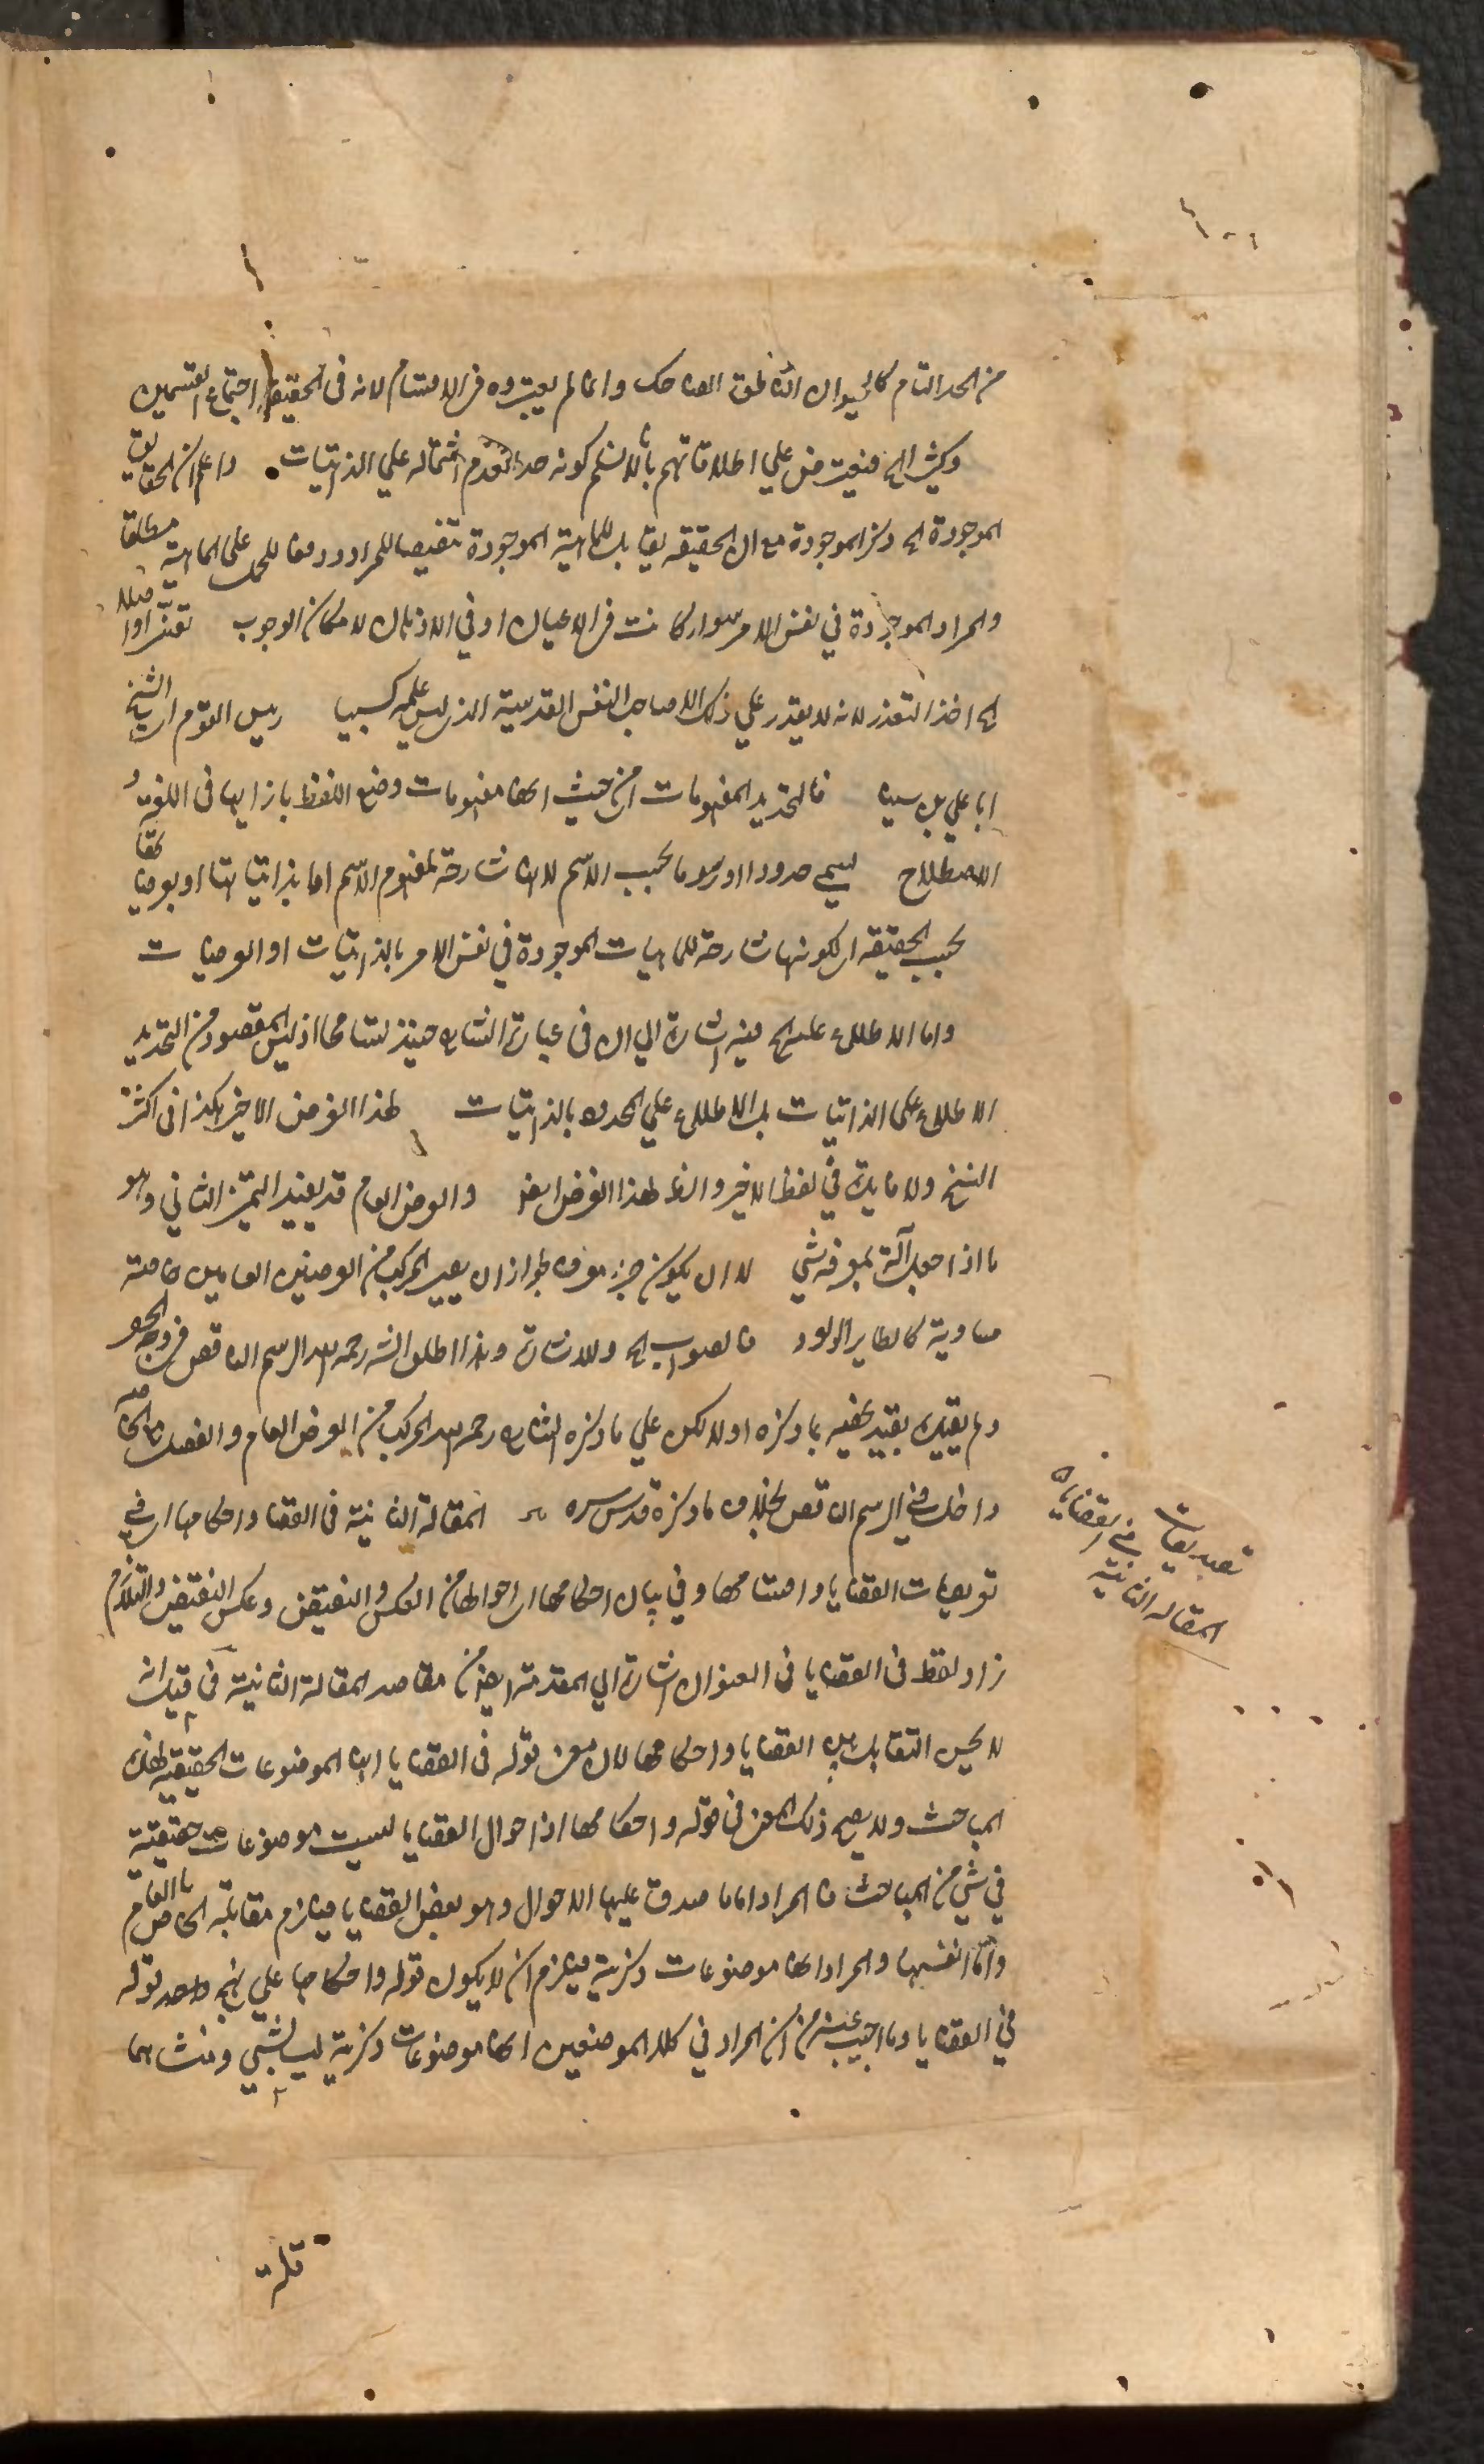 من الحد التام كالحيوان الناطق الضاحك وانما لم يعتبروه في الاقسام لانه في الحقيقة اجتماع القسمين
وكثير الخ فيعترض على اطلاقاتهم بانا لا نسلم كونه حدا لتقدم اشتماله علي الذاتيات واعلم ان الحقايق
الموجودة الخ ذكر الموجودة مع ان الحقيقه يقابل للماهية الموجودة تنصيصا للمراد ودفعا للحمل على الماهية مطلقا
والمراد الموجودة في نفس الامر سواء كانت في الاعيان او في الاذهان لامكان الوجوب
الخ اخذ التعذر لانه لا يقدر علي ذلك الا صاحب النفس القدسية الذي ليس علمه كسبيا رئيس القوم اي الشيخ
ابا علي بن سينا فالتحديد المفهومات اي من حيث انها مفهومات وضع اللفظ بازايها في اللغة او
الاصطلاح يسمى حدودا او رسوما بحسب الاسم لانها شارحة لمفهوم الاسم اما بذاتياتها او بعرضياتها
بحسب الحقيقه اي لكونها شارحة للماهيات الموجودة في نفس الامر بالذاتيات او العرضيات
واما الاطلاع على الخ فيه اشارة الي ان في عبارة الشارح حينئذ تسامحا اذ ليس المقصود من التحديد
الاطلاع على الذاتيات بل الاطلاع علي المحدود بالذاتيات لهذا الغرض الاخير هكذا في اكثر
النسخ ولا فايدة في لفظ الاخير لهذا الغرض ايضا والعرض العام قد يفيد التميز الثاني وهو
ما اذا جعل آلة لمعرفة شي لا ان يكون جزء معرف لجواز ان يصير المركب من العرضين العامين خاصة
مساوية كالطاير الولود فالصواب الخ وللاشارة وهذا اطلق الش رحمه الله الرسم الناقص
ولم يقيده بقيد بخصه بما ذكره اولا لكن علي ما ذكره الشارح رحمه الله المركب من العرض العام والفصل
داخل في الرسم الناقص بخلاف ما ذكره قدس سره المقالة الثانية في القضايا واحكامها اي في
تعريفات القضايا واقسامها وفي بيان احكامها اي احوالها من العكس والنقيض وعكس النقيض والتلازم
زاد لفظ في القضايا في العنوان اشارة الي المقدمة ايضا من مقاصد المقالة الثانية في قيل انه
لا يحسن التقابل بين القضايا واحكامها لان معنى قوله في القضايا انها الموضوعات الحقيقية لهذه
المباحث ولا يصح ذلك المعنى في قوله واحكامها اذ احوال القضايا ليست موضوعات حقيقية
في شي من المباحث فالمراد اما ما صدق عليها الاحوال وهو بعض القضايا فيلزم مقابلة الخاص بالعام
واما انفسها والمراد انها موضوعات ذكرية فيلزم ان لا يكون قوله واحكامها علي نهج قوله
في القضايا وما اجيب عنه من ان المراد في كلا الموضعين انها موضوعات ذكرية ليس بشي ومنشاهما
تصديقات
في القضايا
المقالة الثانية